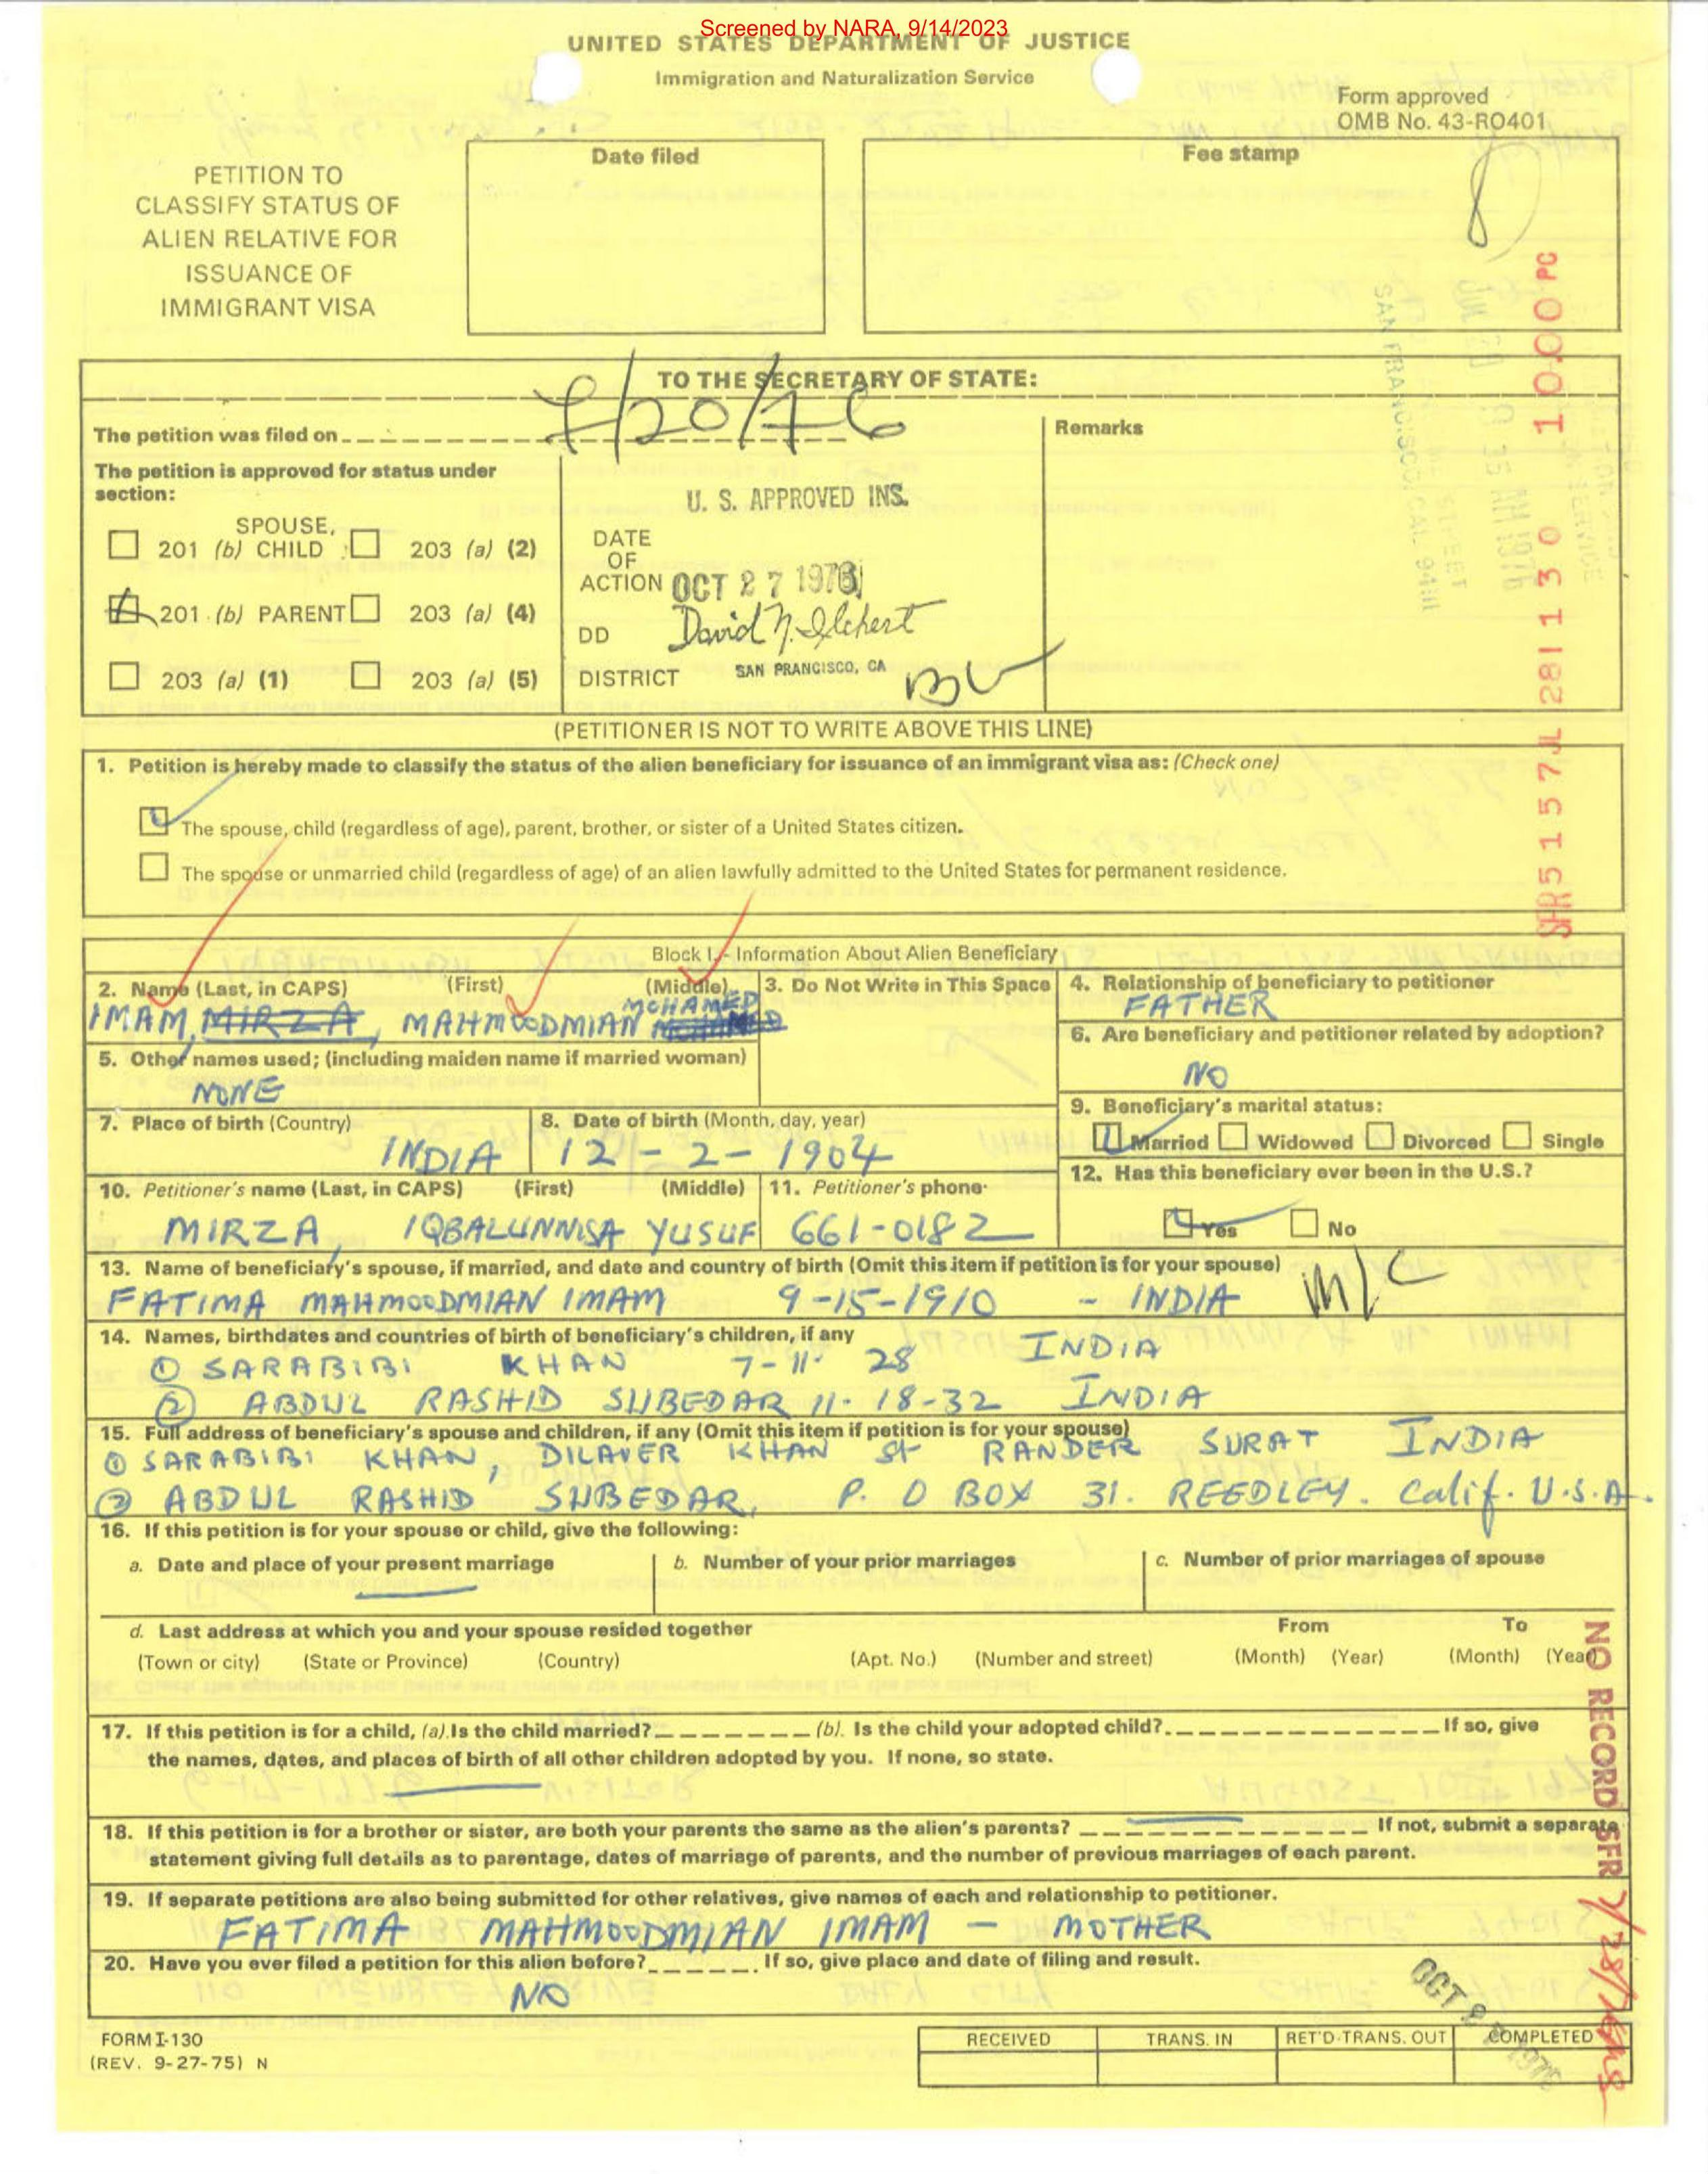 Screened by NARA, 9/14/2023
UNITED STATES DEPARTMENT OF JUSTICE
Immigration and Naturalization Service
Form approved
OMB No. 43-RO401
PETITION TO
CLASSIFY STATUS OF
ALIEN RELATIVE FOR
ISSUANCE OF
IMMIGRANT VISA
Date filed
Fee stamp
TO THE SECRETARY OF STATE:
The petition was filed on 7/20/76
Remarks
The petition is approved for status under
section:
SPOUSE,
201 (b) CHILD
203 (a) (2)
201 (b) PARENT
203 (a) (4)
203 (a) (1)
203 (a) (5)
U. S. APPROVED INS.
DATE
OF
ACTION OCT 27 1976
DD David N. Ilchert
DISTRICT SAN FRANCISCO, CA
10.00 PC
SFR 5 157 JL 281 130
(PETITIONER IS NOT TO WRITE ABOVE THIS LINE)
1. Petition is hereby made to classify the status of the alien beneficiary for issuance of an immigrant visa as: (Check one)
The spouse, child (regardless of age), parent, brother, or sister of a United States citizen.
The spouse or unmarried child (regardless of age) of an alien lawfully admitted to the United States for permanent residence.
Block I.- Information About Alien Beneficiary
2. Name (Last, in CAPS) (First) (Middle)
IMAM, MIRZA, MAHMOODMIAN MOHAMED
3. Do Not Write in This Space
4. Relationship of beneficiary to petitioner
FATHER
5. Other names used; (including maiden name if married woman)
NONE
6. Are beneficiary and petitioner related by adoption?
NO
7. Place of birth (Country)
INDIA
8. Date of birth (Month, day, year)
12-2-1904
9. Beneficiary's marital status:
Married Widowed Divorced Single
10. Petitioner's name (Last, in CAPS) (First) (Middle)
MIRZA, IQBALUNNISA YUSUF
11. Petitioner's phone
661-0182
12. Has this beneficiary ever been in the U.S.?
Yes No
13. Name of beneficiary's spouse, if married, and date and country of birth (Omit this item if petition is for your spouse)
FATIMA MAHMOODMIAN IMAM 9-15-1910 - INDIA
M/C
14. Names, birthdates and countries of birth of beneficiary's children, if any
① SARABIBI KHAN 7-11- 28 INDIA
② ABDUL RASHID SUBEDAR 11-18-32 INDIA
15. Full address of beneficiary's spouse and children, if any (Omit this item if petition is for your spouse)
① SARABIBI KHAN, DILAVER KHAN St RANDER SURAT INDIA
② ABDUL RASHID SUBEDAR, P. O BOX 31. REEDLEY. Calif. U.S.A.
16. If this petition is for your spouse or child, give the following:
a. Date and place of your present marriage
b. Number of your prior marriages
c. Number of prior marriages of spouse
d. Last address at which you and your spouse resided together
From To
(Town or city) (State or Province) (Country) (Apt. No.) (Number and street) (Month) (Year) (Month) (Year)
17. If this petition is for a child, (a). Is the child married? (b). Is the child your adopted child? If so, give
the names, dates, and places of birth of all other children adopted by you. If none, so state.
18. If this petition is for a brother or sister, are both your parents the same as the alien's parents? If not, submit a separate
statement giving full details as to parentage, dates of marriage of parents, and the number of previous marriages of each parent.
19. If separate petitions are also being submitted for other relatives, give names of each and relationship to petitioner.
FATIMA MAHMOODMIAN IMAM - MOTHER
20. Have you ever filed a petition for this alien before? If so, give place and date of filing and result.
NO
NO RECORD SFR
FORM I-130
(REV. 9-27-75) N
RECEIVED
TRANS. IN
RET'D-TRANS. OUT
COMPLETED